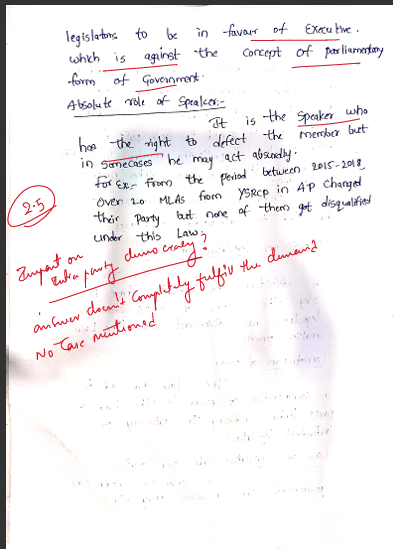 legislators to be in favour of Executive.
which is against the concept of parliamentary
form of Government.
Absolute role of Speaker:-
It is the Speaker who
has the right to defect the member but
in somecases he may act absurdly.
for Ex,- from the period between 2015-2018
over 20 MLAs from YSRCP in AP changed
their Party but none of them got disqualified
under this Law.
2.5
Impact on
Intra party democracy?
answer doesn't completely fulfill the demand
No Case mentioned